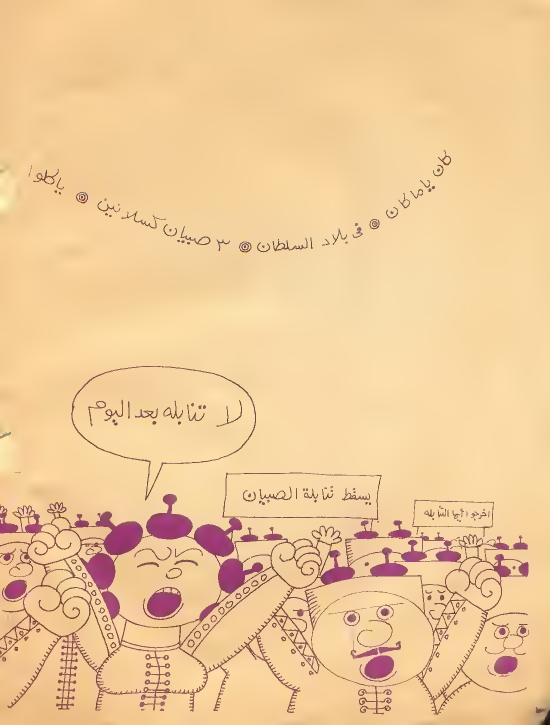 كان ياما كان ◎ فى بلاد السلطان ◎ ٣ صبيان كسلانين ◎ ياكلوا
لا تنابله بعد اليوم
يسقط تنابلة الصبيان
اخرجوا ايها التنابله